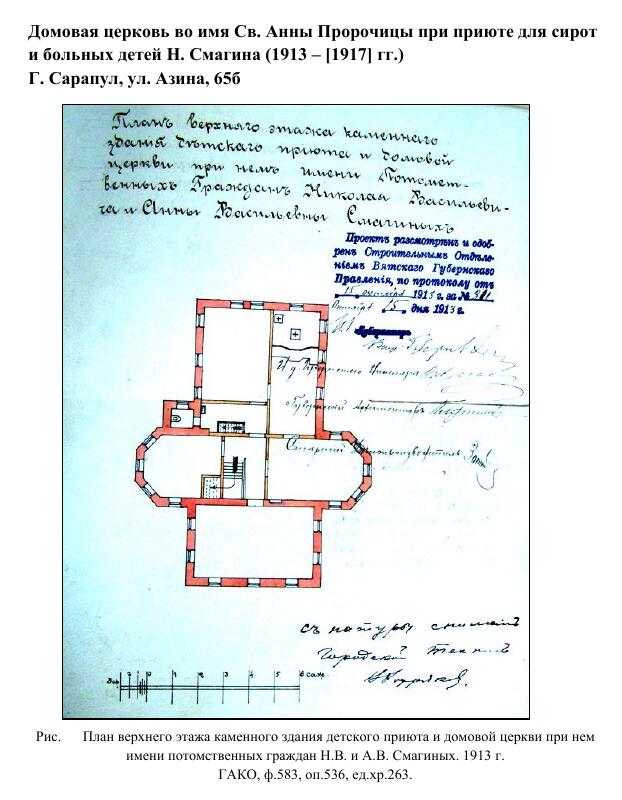 Домовая церковь во имя Св. Анны Пророчицы при приюте для сирот
и больных детей Н. Смагина (1913 – [1917] гг.)
Г. Сарапул, ул. Азина, 65б
Планъ верхняго этажа каменнаго
зданія дѣтскаго приюта и домовой
церкви при немъ имени Потомст-
венныхъ Гражданъ Николая Васильеви-
ча и Анны Васильевны Смагиныхъ
Проектъ разсмотрѣнъ и одоб-
ренъ Строительнымъ Отдѣле-
ніемъ Вятскаго Губернскаго
Правленія, по протоколу отъ
15 октября 1913 г. за №
Октября 15 дня 1913 г.
Губернаторъ
Вице-Губерн
И д Губернскаго Инженера
Губернскій Архитекторъ
Старшій Дѣлопроизводитель
съ натуры снималъ
Городской Техникъ
1 2 3 4 5 6 саж.
Рис. План верхнего этажа каменного здания детского приюта и домовой церкви при нем
имени потомственных граждан Н.В. и А.В. Смагиных. 1913 г.
ГАКО, ф.583, оп.536, ед.хр.263.